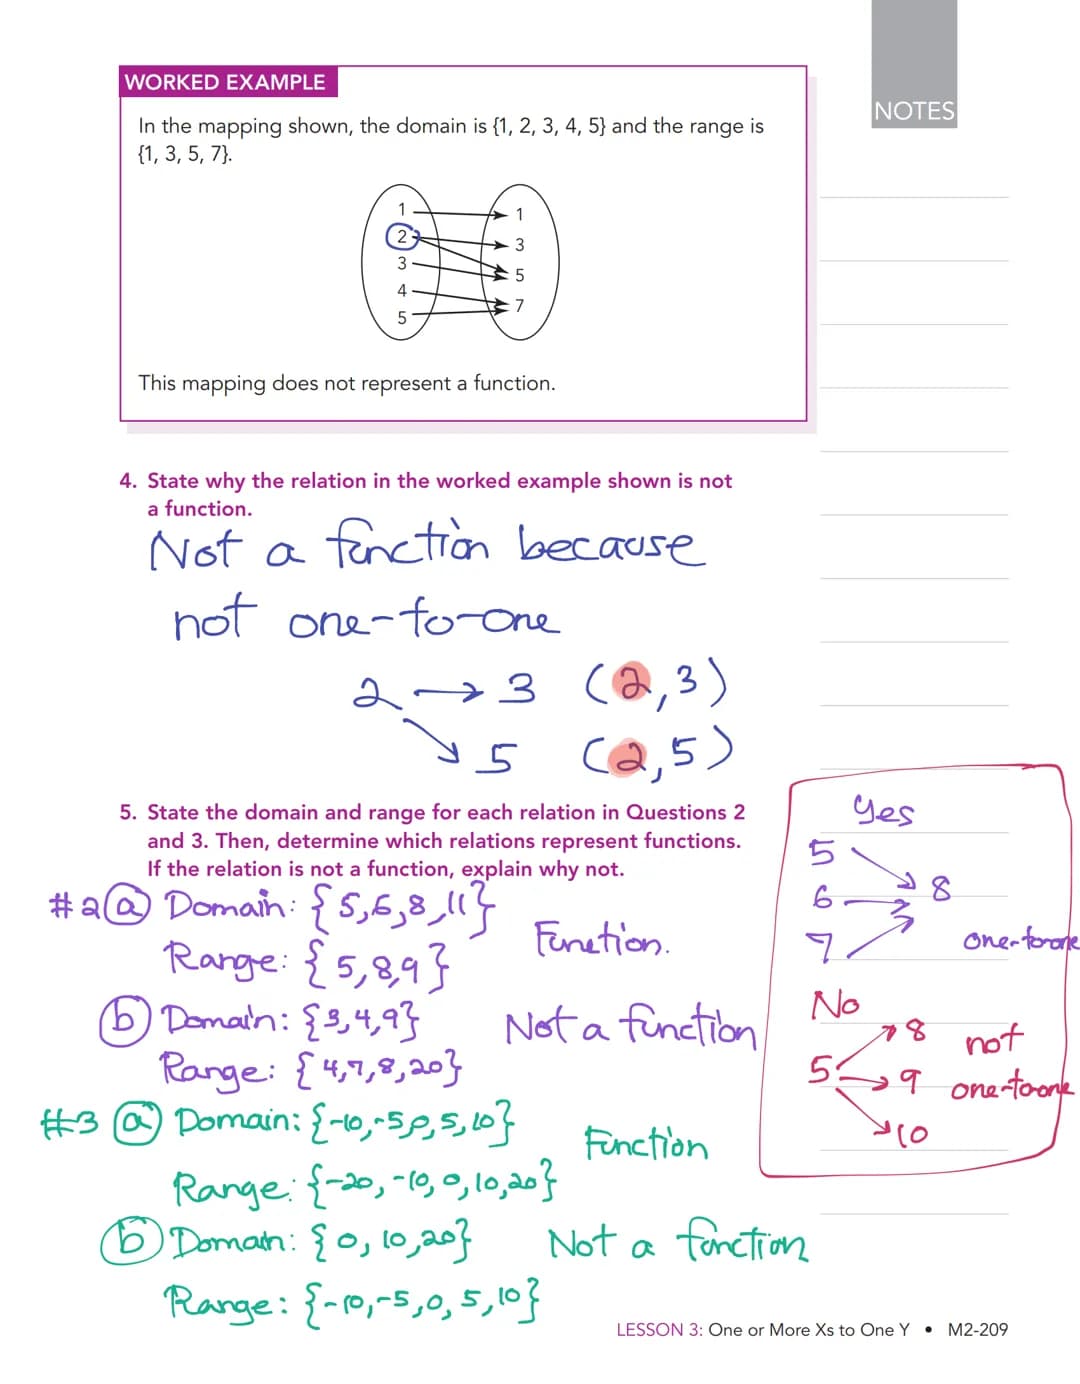 NOTES
WORKED EXAMPLE
In the mapping shown, the domain is {1, 2, 3, 4, 5} and the range is
{1, 3, 5, 7}.
1 1
2 3
3 5
4 7
5
This mapping does not represent a function.
4. State why the relation in the worked example shown is not
a function.
Not a function because
not one-to-one
2 → 3 (2,3)
↘ 5 (2,5)
5. State the domain and range for each relation in Questions 2
and 3. Then, determine which relations represent functions.
If the relation is not a function, explain why not.
#2 a Domain: {5,6,8,11}
Range: {5,8,9}
Function.
b Domain: {3,4,9}
Range: {4,7,8,20}
Not a function
#3 a Domain: {-10,-5,0,5,10}
Range: {-20,-10,0,10,20}
Function
b Domain: {0,10,20}
Range: {-10,-5,0,5,10}
Not a function
Yes
5
6 8
7
one-to-one
No
8
5 9
10
not
one-to-one
LESSON 3: One or More Xs to One Y • M2-209